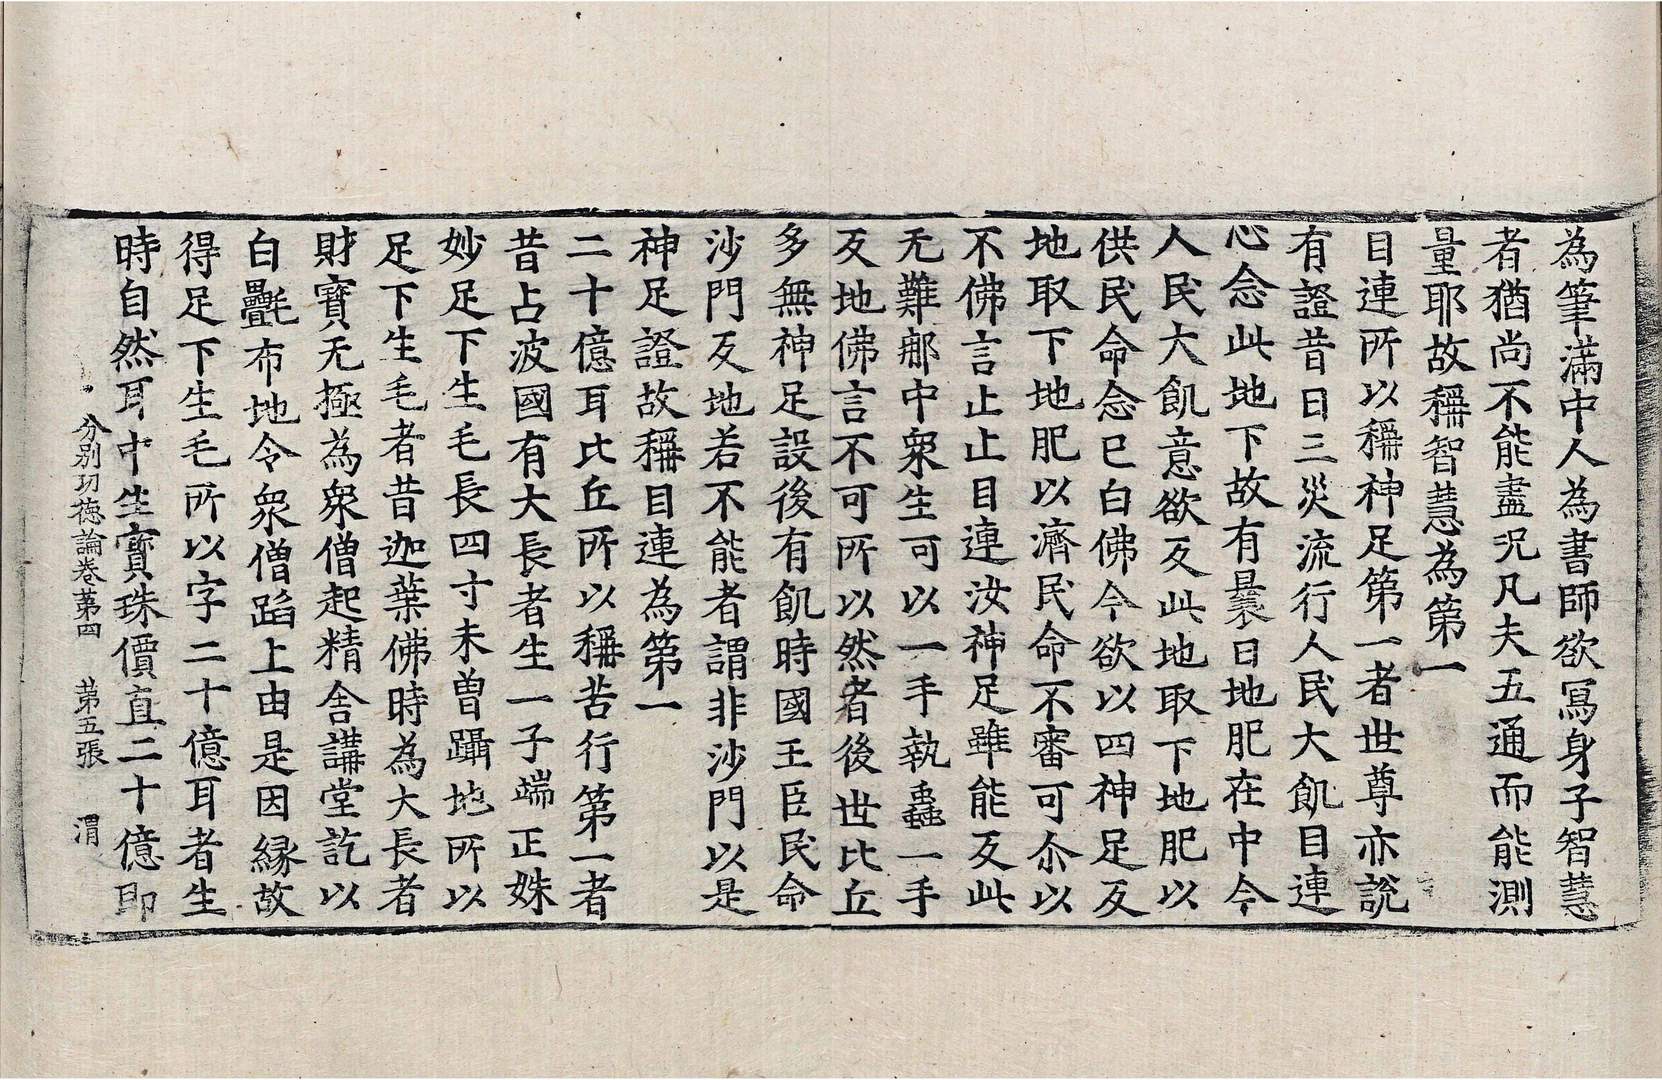 為筆滿中人為書師欲冩身子智慧
者猶尚不能盡況凡夫五通而能測
量耶故稱智慧為第一
目連所以稱神足第一者世尊亦說
有證昔日三災流行人民大飢目連
心念此地下故有曩日地肥在中今
人民大飢意欲反此地取下地肥以
供民命念已白佛今欲以四神足反
地取下地肥以濟民命不審可尒以
不佛言止止目連汝神足雖能反此
无難那中衆生可以一手執蟲一手
反地佛言不可所以然者後世比丘
多無神足設後有飢時國王臣民命
沙門反地若不能者謂非沙門以是
神足證故稱目連為第一
二十億耳比丘所以稱苦行第一者
昔占波國有大長者生一子端正姝
妙足下生毛長四寸未曽躡地所以
足下生毛者昔迦葉佛時為大長者
財寶无極為衆僧起精舍講堂訖以
白㲲布地令衆僧蹈上由是因縁故
得足下生毛所以字二十億耳者生
時自然耳中生寳珠價直二十億即
分別功德論卷苐四　苐五張　渭